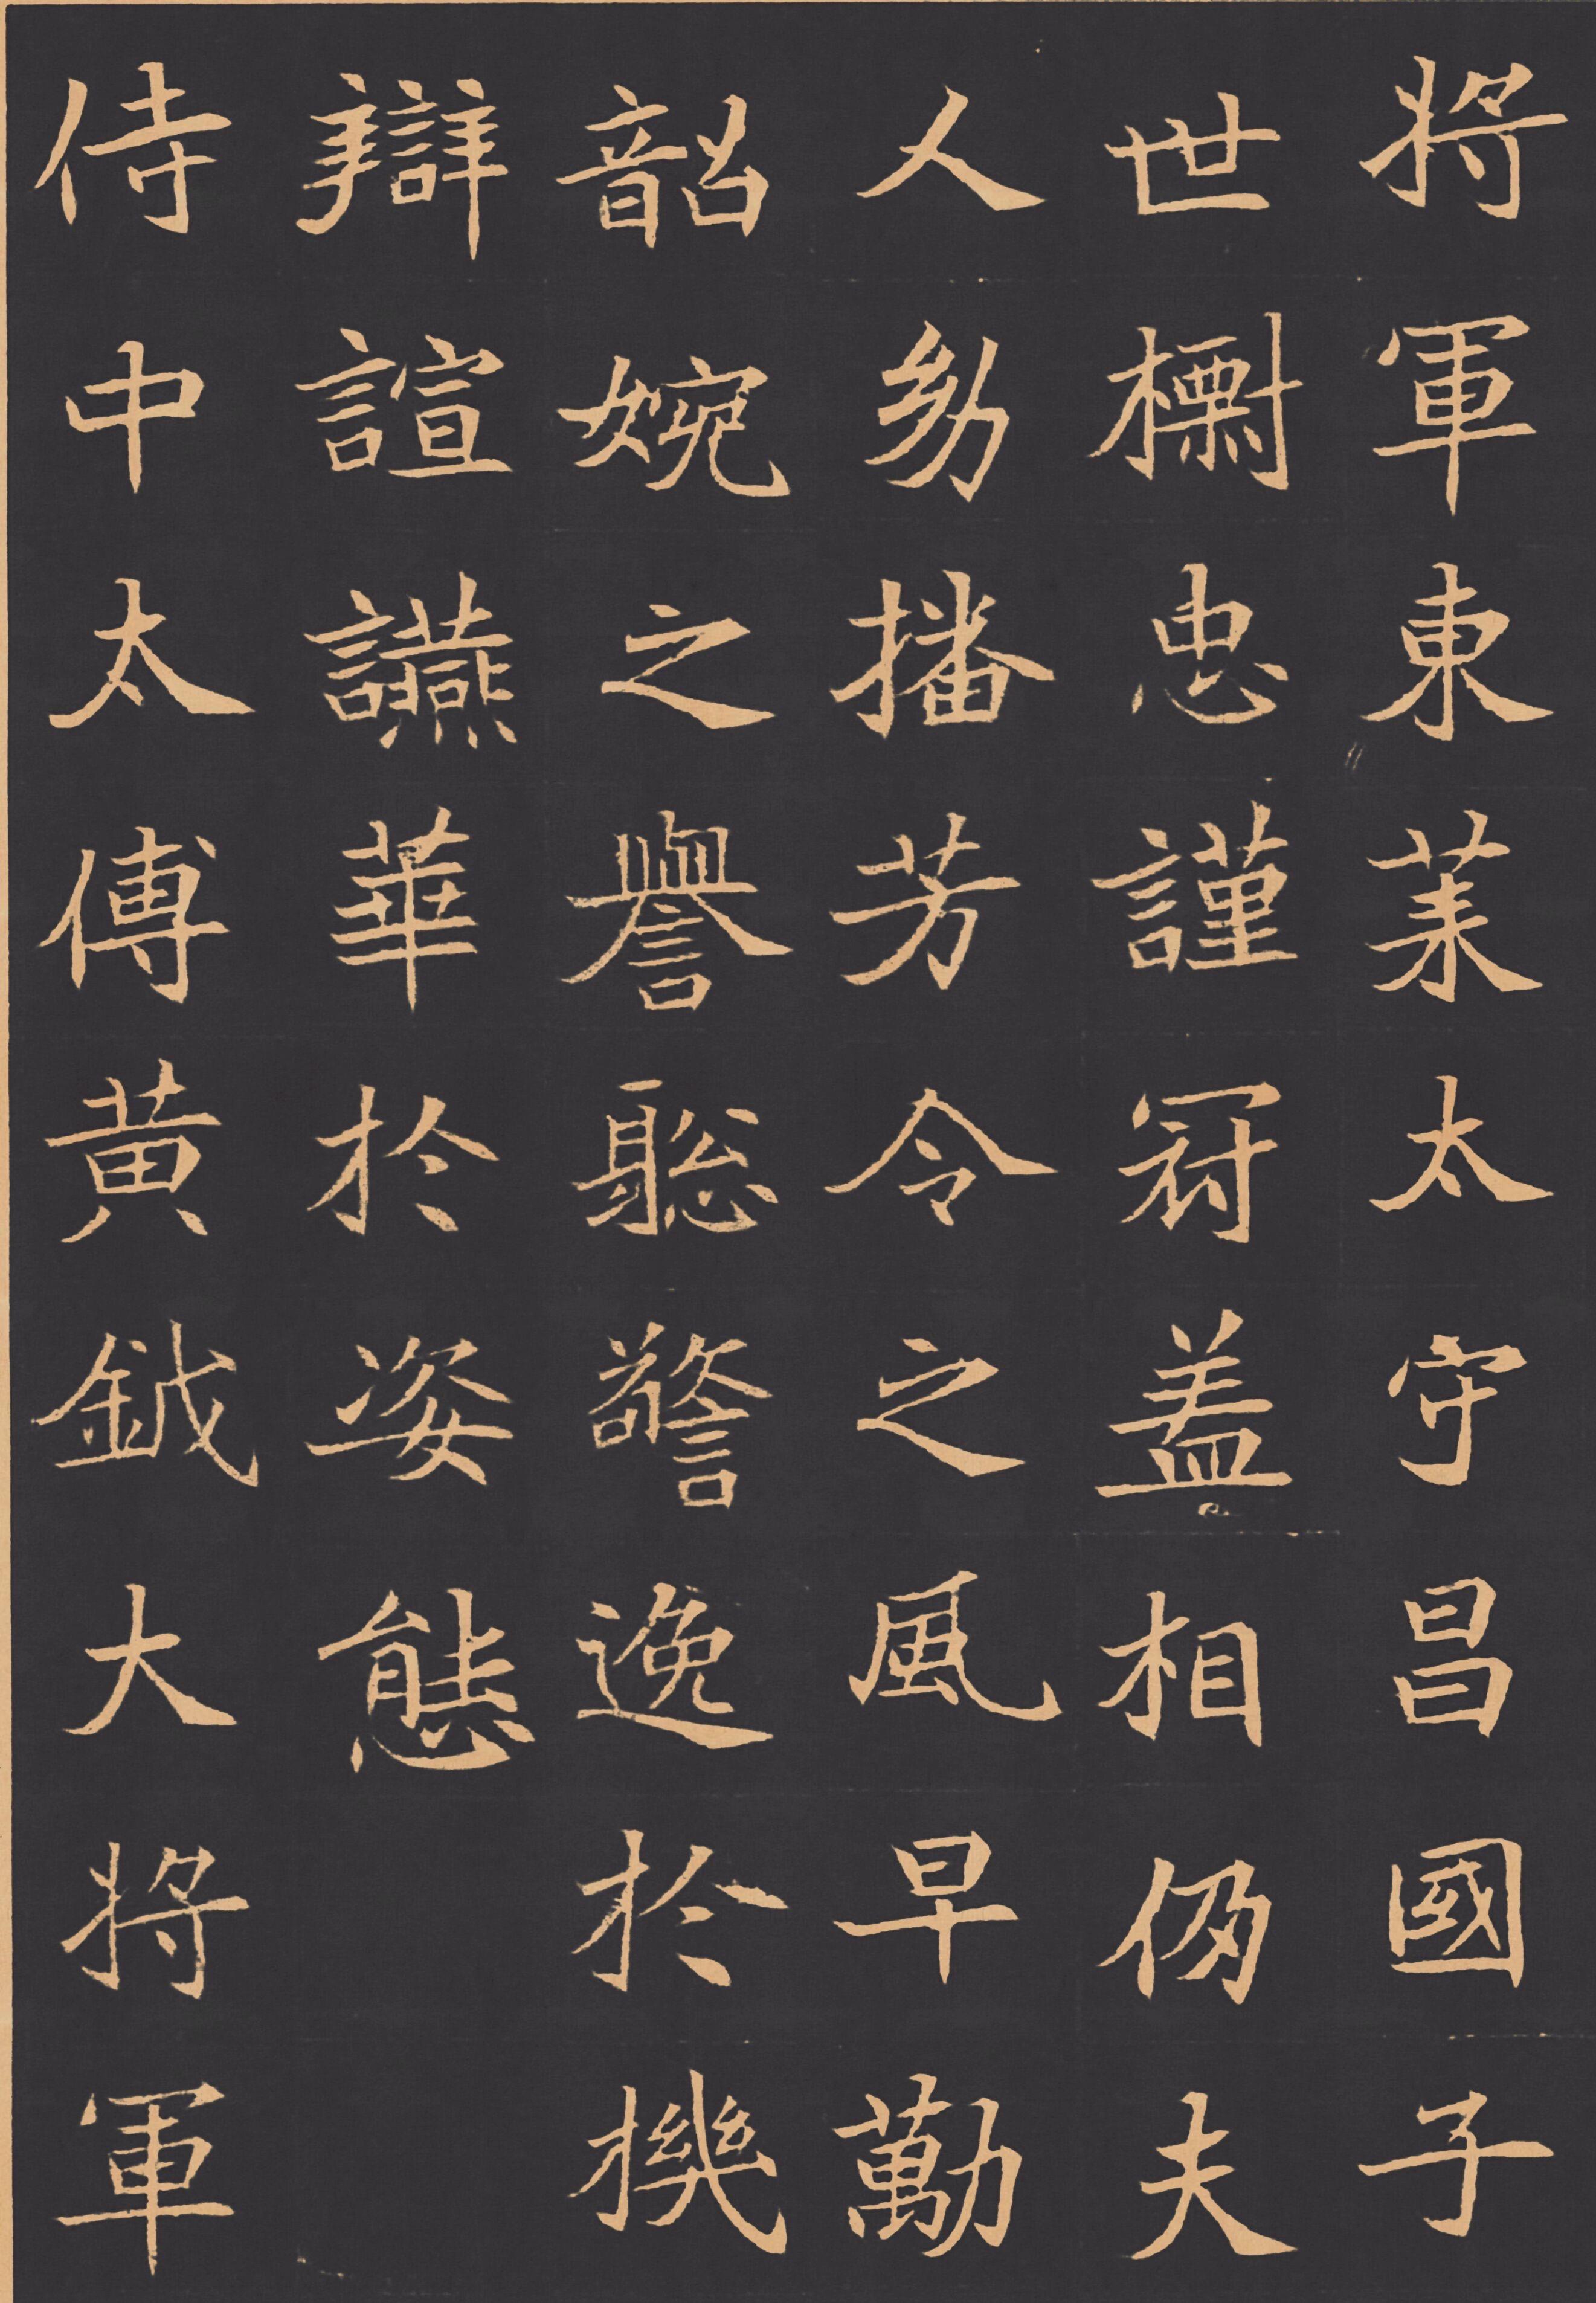 將軍東萊太守昌國子
世樹忠謹冠蓋相仍夫
人幼播芳令之風早勱
韶婉之譽聡警逸於機
辯諠讌華於姿態
侍中太傅黄鉞大將軍